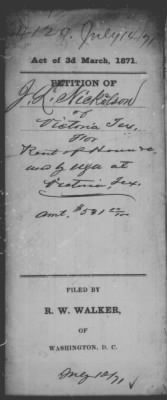 July 14/71
Act of 3d March, 1871.
PETITION OF
J. L. Nickelson
of
Victoria Tex.
For
Rent of House &c
used by USA at
Victoria, Tex.
Amt. $
FILED BY
R. W. WALKER,
OF
WASHINGTON, D. C.